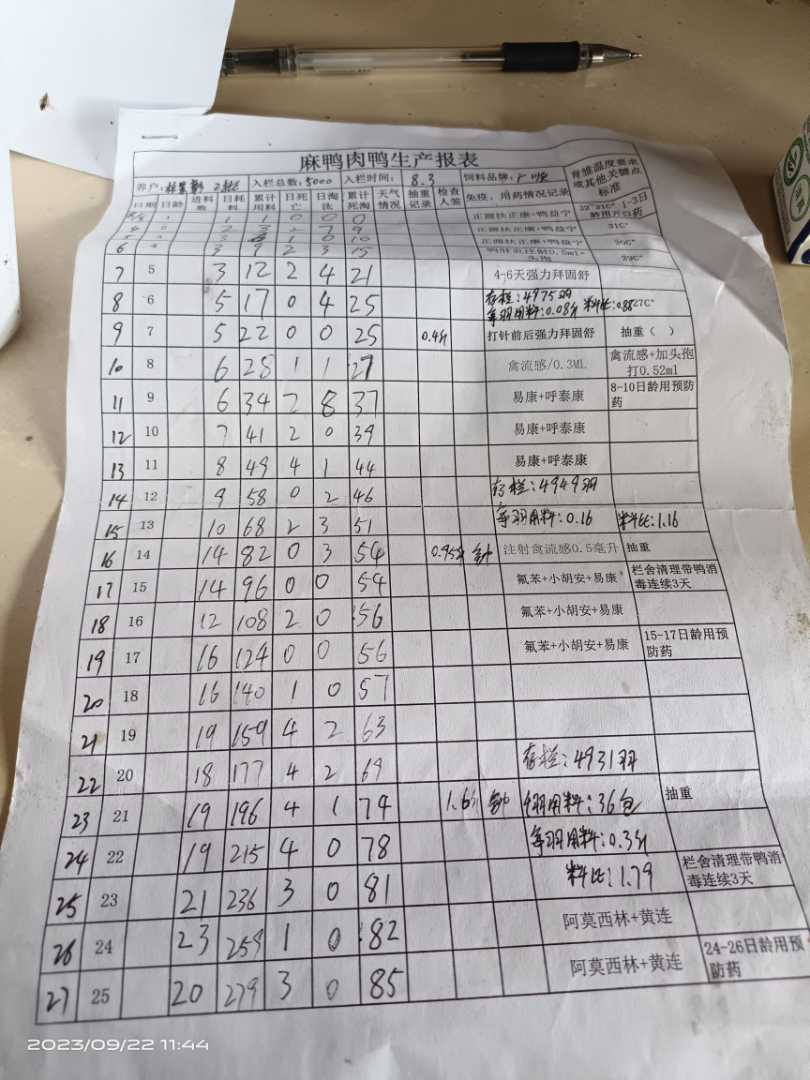 麻鸭肉鸭生产报表
养户: 入栏总数:5000 入栏时间: 8.3 饲料品牌: 育雏温度要求或其他关键点标准
日期 日龄 进料数 日耗料 累计用料 日死亡 日淘汰 累计死淘 天气情况 抽重记录 检查人签 免疫、用药情况记录
1 1 0 0 0 正圆扶正康+鸭益宁 1-3日龄用开口药
2 3 2 7 9 正圆扶正康+鸭益宁 31C°
1 0 10 正圆扶正康+鸭益宁 30C°
6 4 3 2 3 15 29C°
7 5 3 12 2 4 21 4-6天强力拜固舒
8 6 5 17 0 4 25 存栏:4975羽 每羽用料:0.08斤 料比:0.88 27C°
9 7 5 22 0 0 25 0.4斤 打针前后强力拜固舒 抽重( )
10 8 6 28 1 1 27 禽流感/0.3ML 禽流感+加头孢打0.52ml
11 9 6 34 2 8 37 易康+呼泰康 8-10日龄用预防药
12 10 7 41 2 0 39 易康+呼泰康
13 11 8 49 4 1 44 易康+呼泰康
14 12 9 58 0 2 46 存栏:4949羽
15 13 10 68 2 3 51 每羽用料:0.16 料比:1.16
16 14 14 82 0 3 54 0.95斤 注射禽流感0.5毫升 抽重
17 15 14 96 0 0 54 氟苯+小胡安+易康 栏舍清理带鸭消毒连续3天
18 16 12 108 2 0 56 氟苯+小胡安+易康
19 17 16 124 0 0 56 氟苯+小胡安+易康 15-17日龄用预防药
20 18 16 140 1 0 57
21 19 19 159 4 2 63
22 20 18 177 4 2 69 存栏:4931羽
23 21 19 196 4 1 74 1.6斤 用料:36包 抽重
24 22 19 215 4 0 78 每羽用料:0.3斤
25 23 21 236 3 0 81 料比:1.79 栏舍清理带鸭消毒连续3天
26 24 23 259 1 0 82 阿莫西林+黄连
27 25 20 279 3 0 85 阿莫西林+黄连 24-26日龄用预防药
2023/09/22 11:44